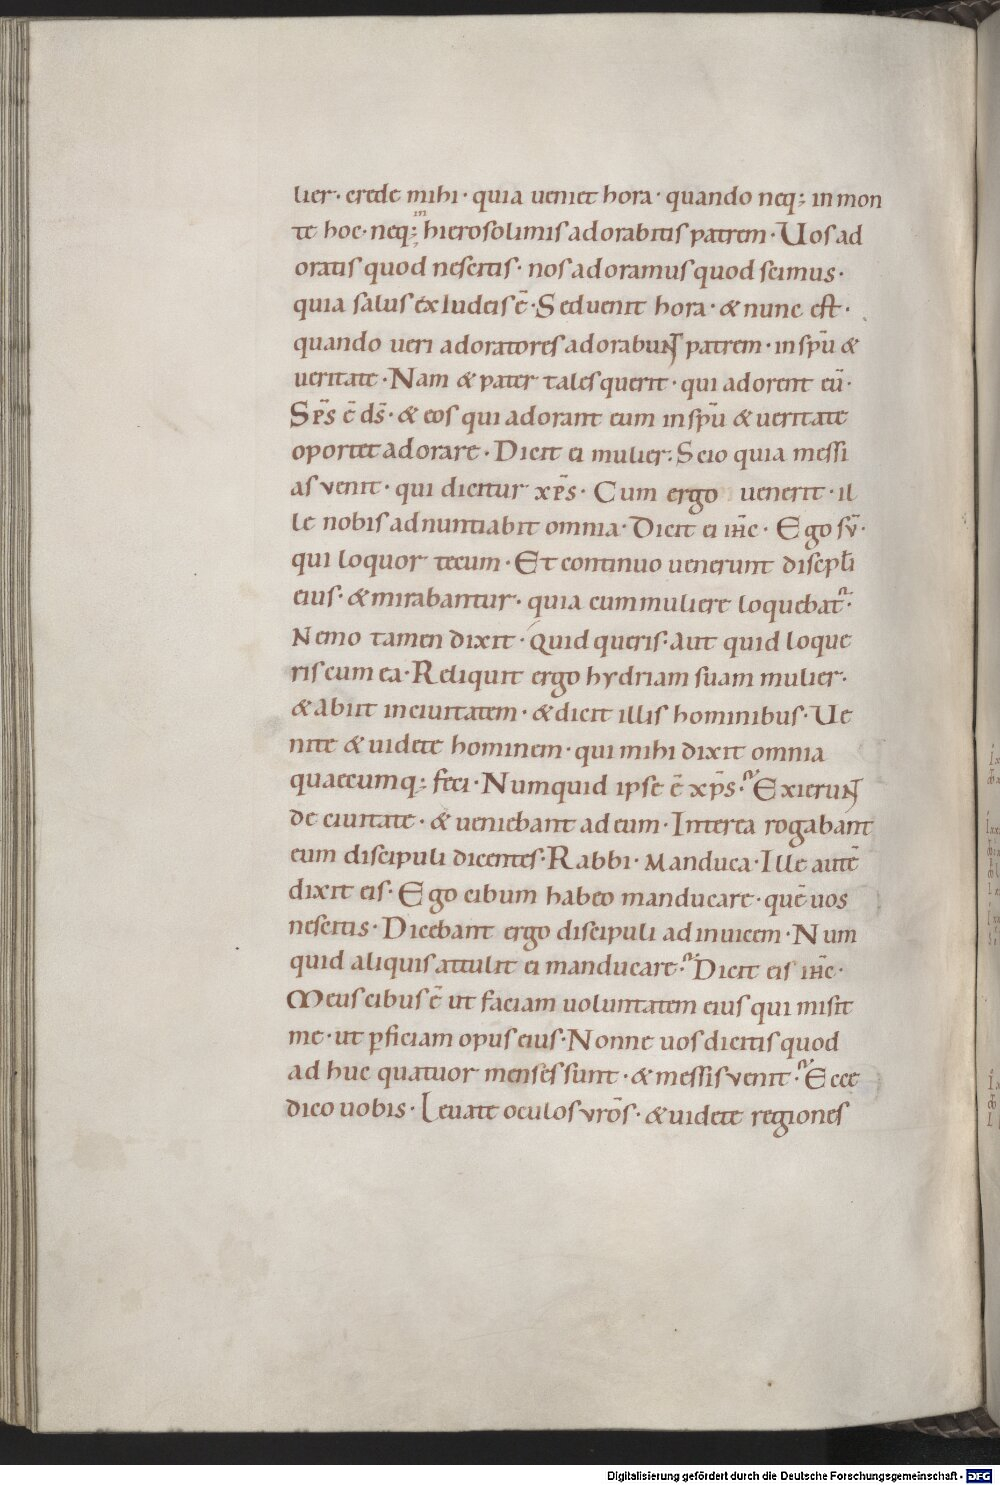 lier· crede mihi· quia ueniet hora· quando neq; in mon
te hoc· neq; in hierosolimis adorabitis patrem· Uos ad
oratis quod nescitis· nos adoramus quod scimus·
quia salus ex iudeis ē· Sed uenit hora· & nunc est·
quando ueri adoratores adorabunt patrem· in spū &
ueritate· Nam & pater tales querit· qui adorent eū·
Sp̄s ē ds̄· & eos qui adorant eum in spū & ueritate
oportet adorare· Dicit ei mulier· Scio quia messi
as venit· qui dicitur xp̄s· Cum ergo uenerit· il
le nobis adnuntiabit omnia· Dicit ei ih̄c· Ego sv̄·
qui loquor tecum· Et continuo uenerunt discipl̄i
eius· & mirabantur· quia cum muliere loquebat᷑·
Nemo tamen dixit· Quid queris· Aut quid loque
ris cum ea· Reliquit ergo hydriam suam mulier·
& abiit in ciuitatem· & dicit illis hominibus· Ue
nite & uidete hominem· qui mihi dixit omnia
quaecumq; feci· Numquid ipse ē xp̄s· Exierunt
de ciuitate· & ueniebant ad eum· Interea rogabant
eum discipuli dicentes· Rabbi· Manduca· Ille autē
dixit eis· Ego cibum habeo manducare· quē uos
nescitis· Dicebant ergo discipuli adinuicem· Num
quid aliquis attulit ei manducare· Dicit eis ih̄c·
Meus cibus ē ut faciam uoluntatem eius qui misit
me· ut ꝑficiam opus eius· Nonne uos dicitis quod
ad huc quatuor menses sunt· & messis venit· Ecce
dico uobis· Leuate oculos vrōs· & uidete regiones
Digitalisierung gefördert durch die Deutsche Forschungsgemeinschaft - DFG